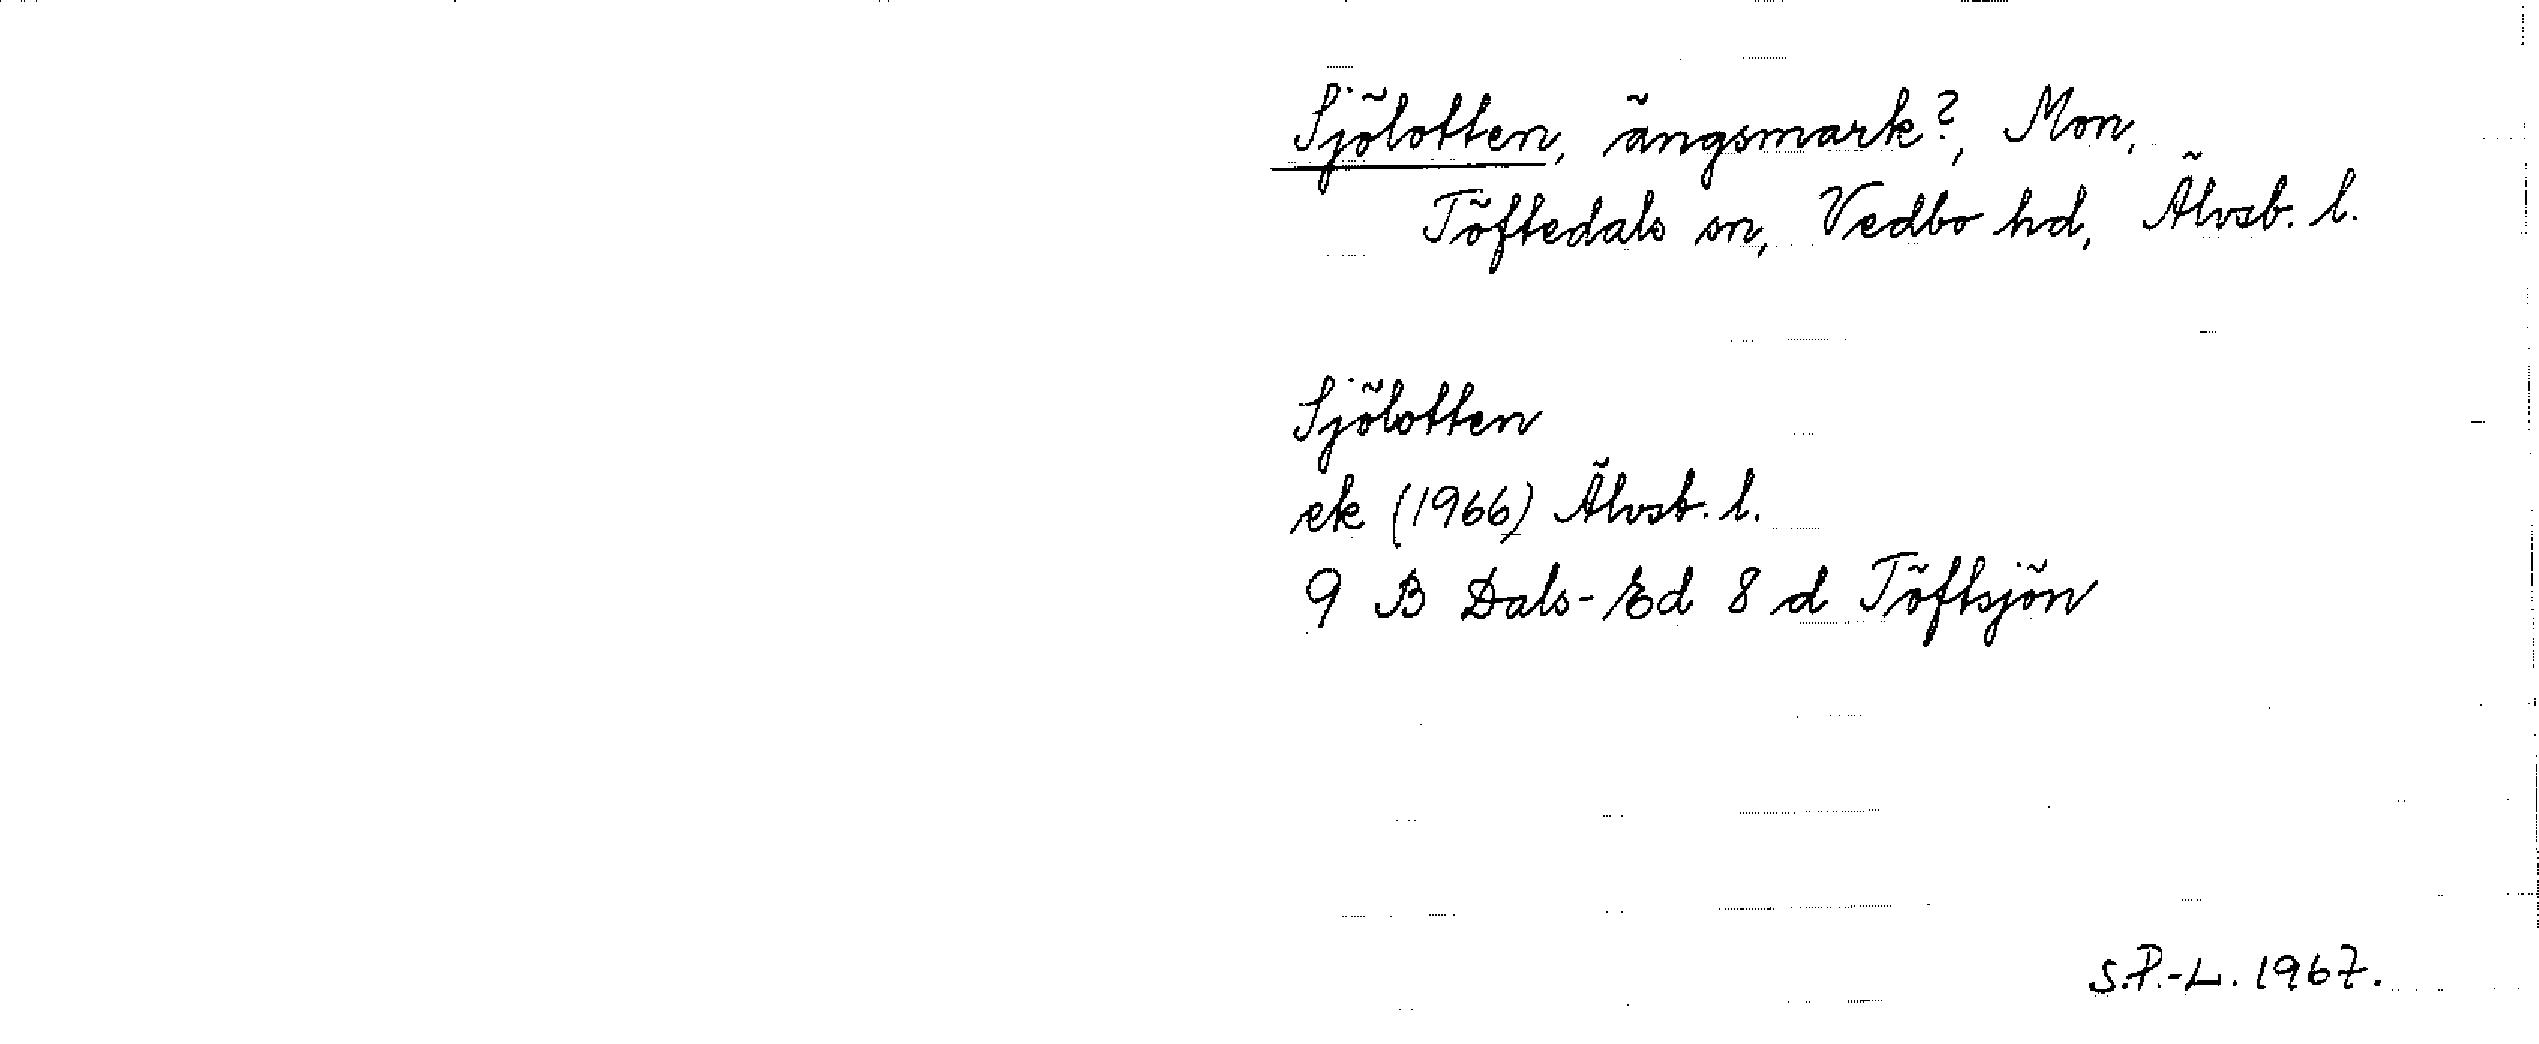 Sjölotten, ängsmark?, Mon,
Töftedals sn, Vedbo hd, Älvsb. l.
Sjölotten
ek (1966) Älvsb. l.
9 B Dals-Ed 8 d Töftsjön
S.P.-L. 1967.